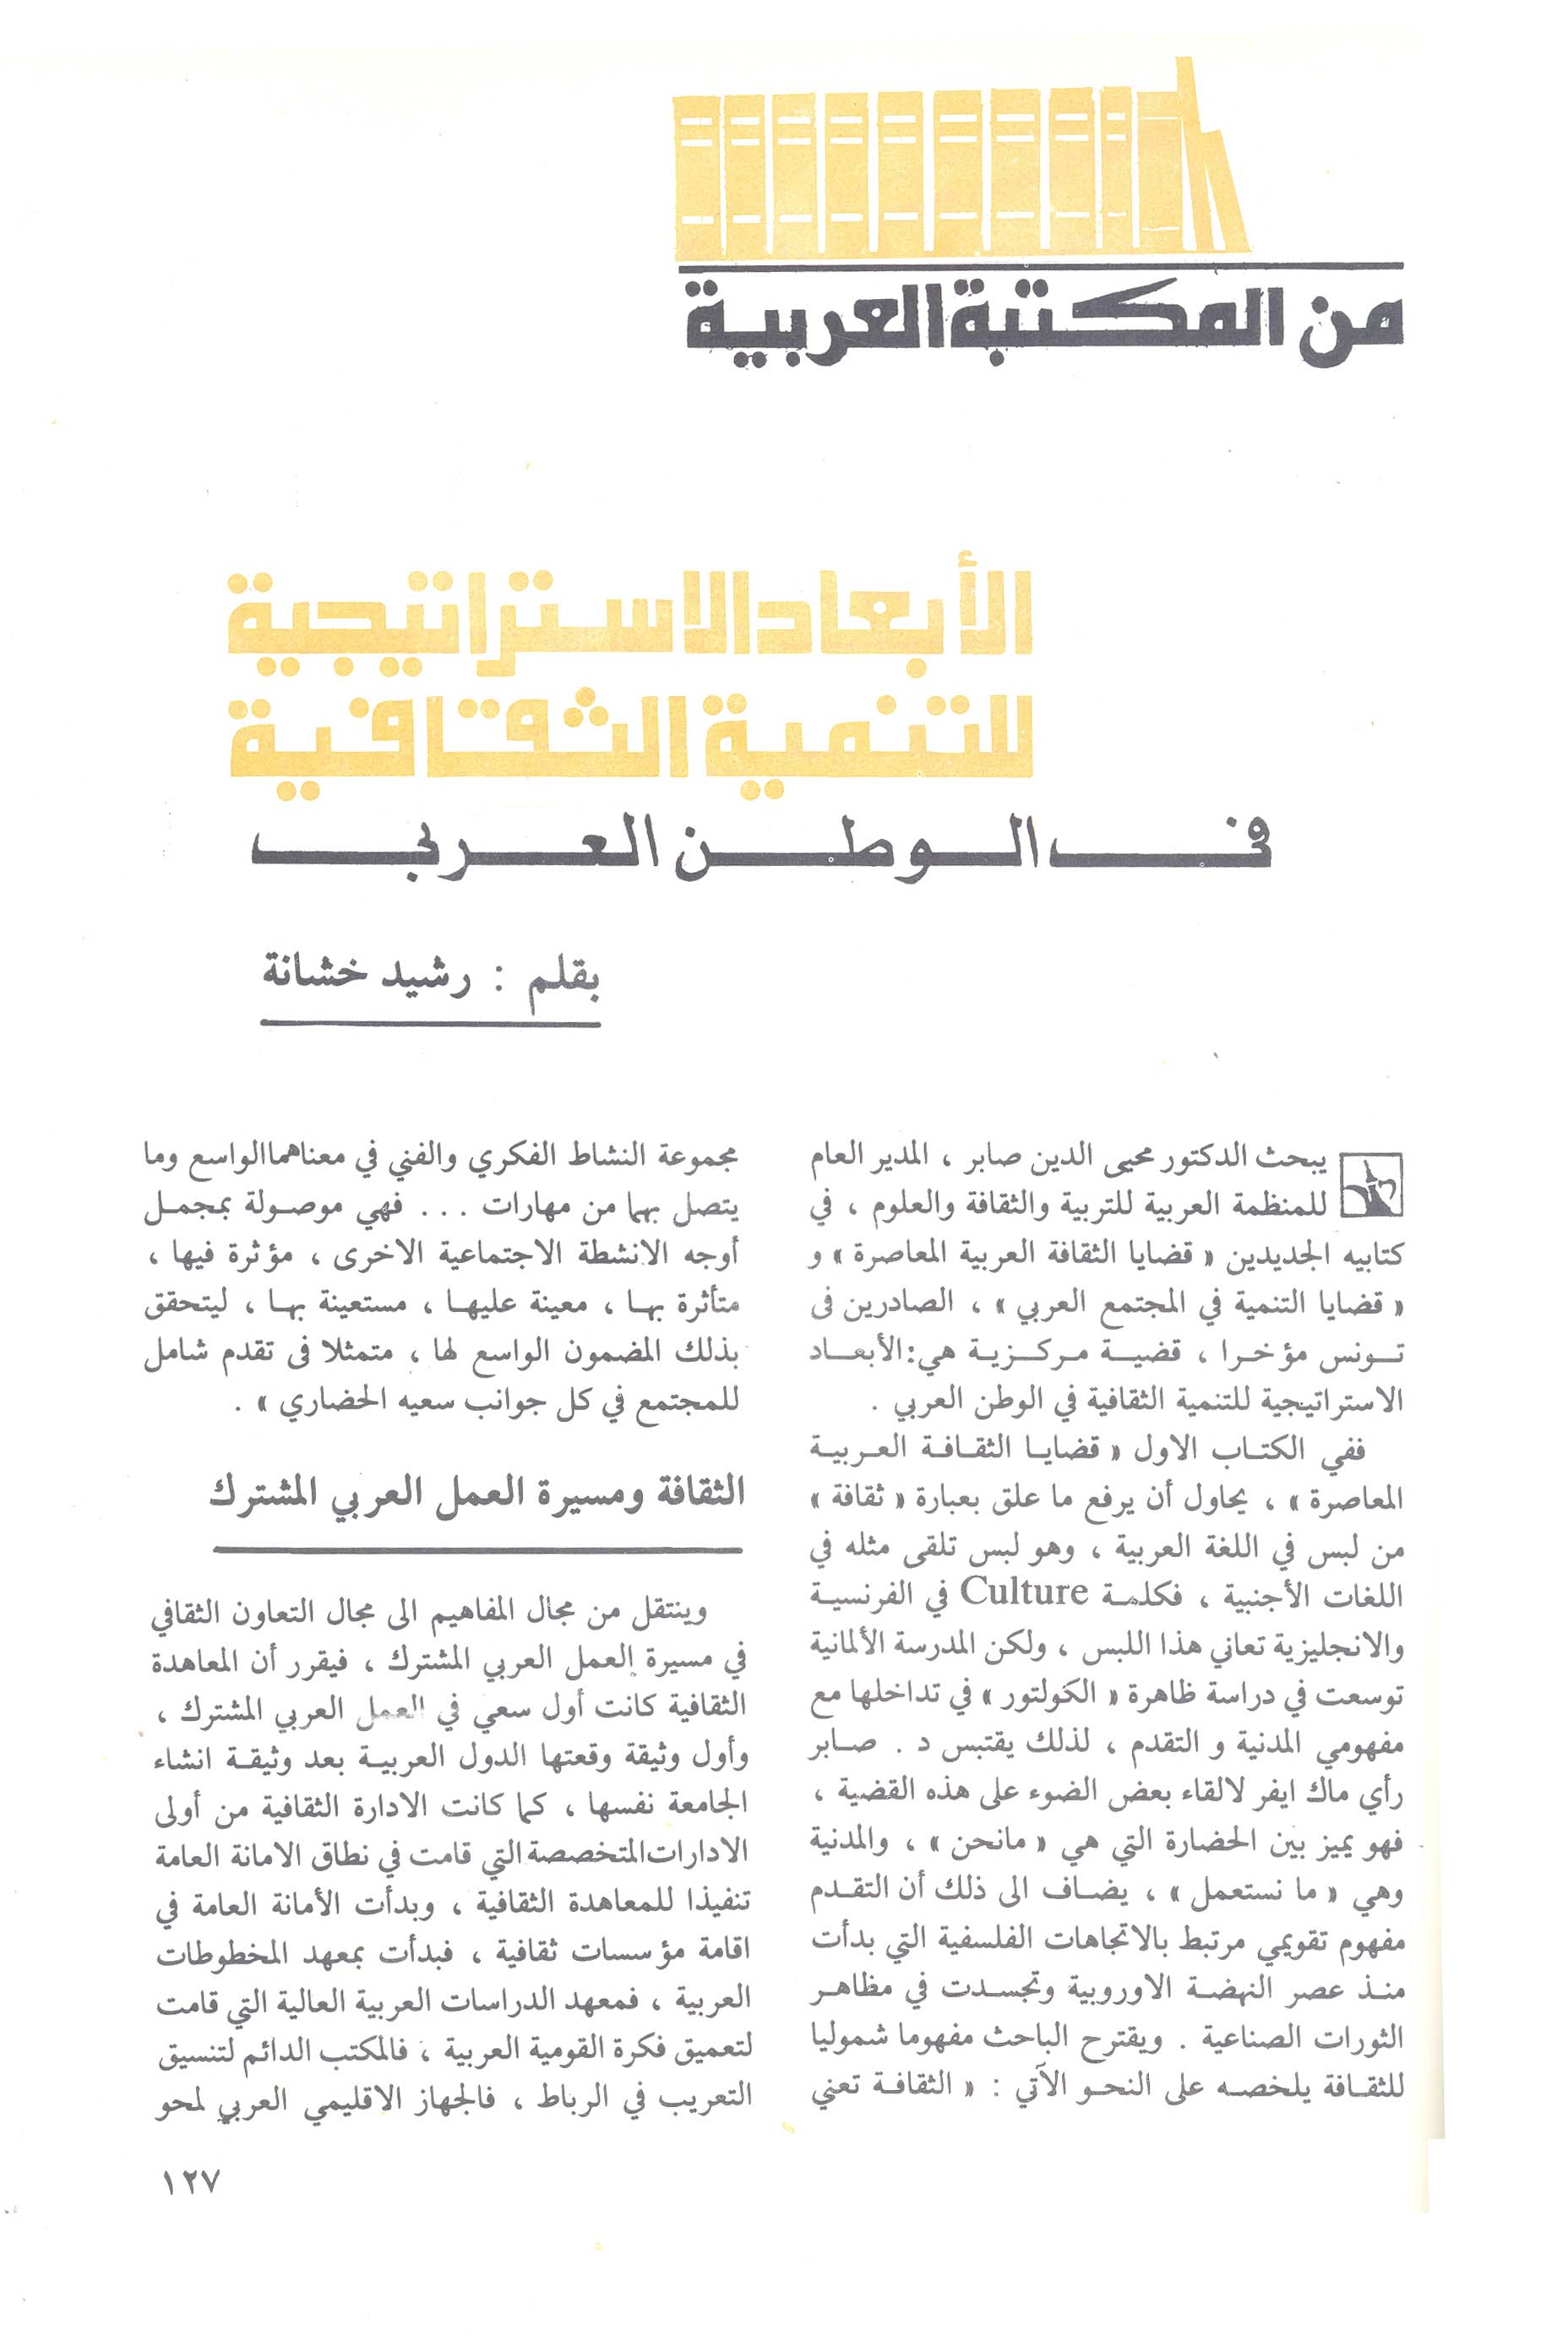 من المكتبة العربية
الأبعاد الاستراتيجية
للتنمية الثقافية
في الوطن العربي
بقلم : رشيد خشانة
يبحث الدكتور محيى الدين صابر ، المدير العام
للمنظمة العربية للتربية والثقافة والعلوم ، في
كتابيه الجديدين « قضايا الثقافة العربية المعاصرة » و
« قضايا التنمية في المجتمع العربي » ، الصادرين فى
تونس مؤخرا ، قضية مركزية هي : الأبعاد
الاستراتيجية للتنمية الثقافية في الوطن العربي .
ففي الكتاب الاول « قضايا الثقافة العربية
المعاصرة » ، يحاول أن يرفع ما علق بعبارة « ثقافة »
من لبس في اللغة العربية ، وهو لبس تلقى مثله في
اللغات الأجنبية ، فكلمة Culture في الفرنسية
والانجليزية تعاني هذا اللبس ، ولكن المدرسة الألمانية
توسعت في دراسة ظاهرة « الكولتور » في تداخلها مع
مفهومي المدنية و التقدم ، لذلك يقتبس د . صابر
رأي ماك ايفر لالقاء بعض الضوء على هذه القضية ،
فهو يميز بين الحضارة التي هي « مانحن » ، والمدنية
وهي « ما نستعمل » ، يضاف الى ذلك أن التقدم
مفهوم تقويمي مرتبط بالاتجاهات الفلسفية التي بدأت
منذ عصر النهضة الاوروبية وتجسدت في مظاهر
الثورات الصناعية . ويقترح الباحث مفهوما شموليا
للثقافة يلخصه على النحو الآتي : « الثقافة تعني
مجموعة النشاط الفكري والفني في معناهما الواسع وما
يتصل بهما من مهارات ... فهي موصولة بمجمل
أوجه الانشطة الاجتماعية الاخرى ، مؤثرة فيها ،
متأثرة بها ، معينة عليها ، مستعينة بها ، ليتحقق
بذلك المضمون الواسع لها ، متمثلا فى تقدم شامل
للمجتمع في كل جوانب سعيه الحضاري » .
الثقافة ومسيرة العمل العربي المشترك
وينتقل من مجال المفاهيم الى مجال التعاون الثقافي
في مسيرة العمل العربي المشترك ، فيقرر أن المعاهدة
الثقافية كانت أول سعي في العمل العربي المشترك ،
وأول وثيقة وقعتها الدول العربية بعد وثيقة انشاء
الجامعة نفسها ، كما كانت الادارة الثقافية من أولى
الادارات المتخصصة التي قامت في نطاق الامانة العامة
تنفيذا للمعاهدة الثقافية ، وبدأت الأمانة العامة في
اقامة مؤسسات ثقافية ، فبدأت بمعهد المخطوطات
العربية ، فمعهد الدراسات العربية العالية التي قامت
لتعميق فكرة القومية العربية ، فالمكتب الدائم لتنسيق
التعريب في الرباط ، فالجهاز الاقليمي العربي لمحو
١٢٧